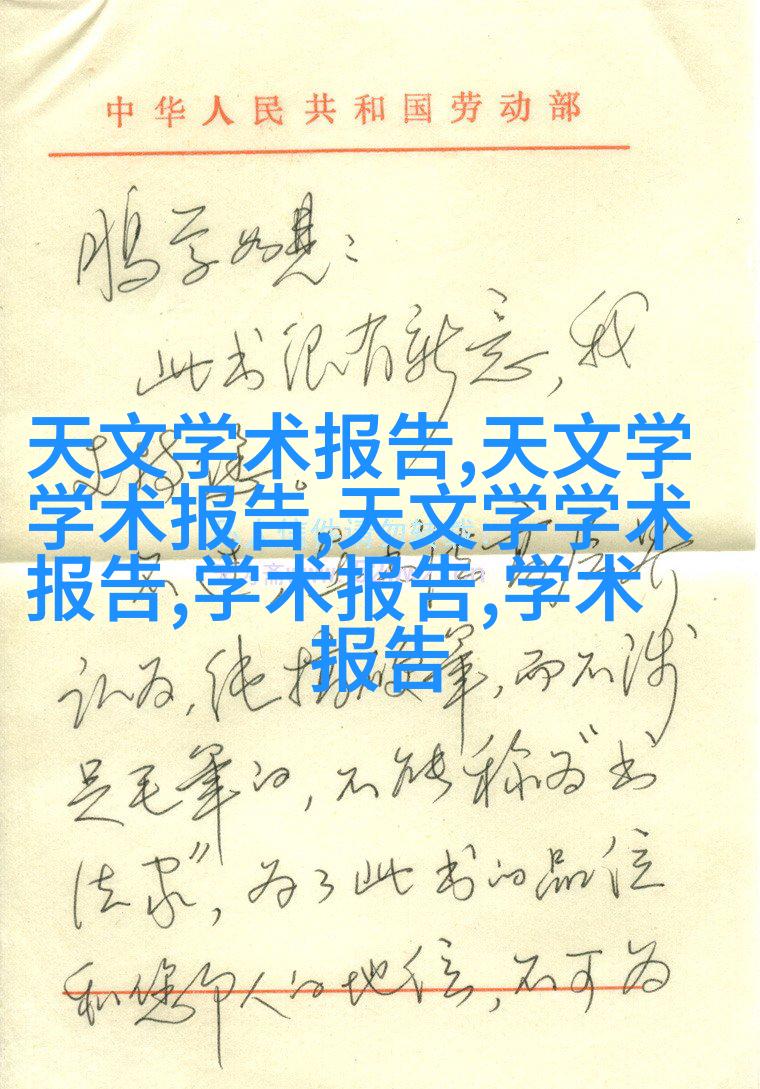 中华人民共和国劳动部
鹏学如晤：
此书很有新意，我
支持您。
天文学术报告,天文学
学术报告,天文学学术
报告,学术报告,学术
报告
认为，纯搞硬笔，而不涉
足毛笔的，不能称为“书
法家”，为了此书的品位
和您个人的地位，不可为